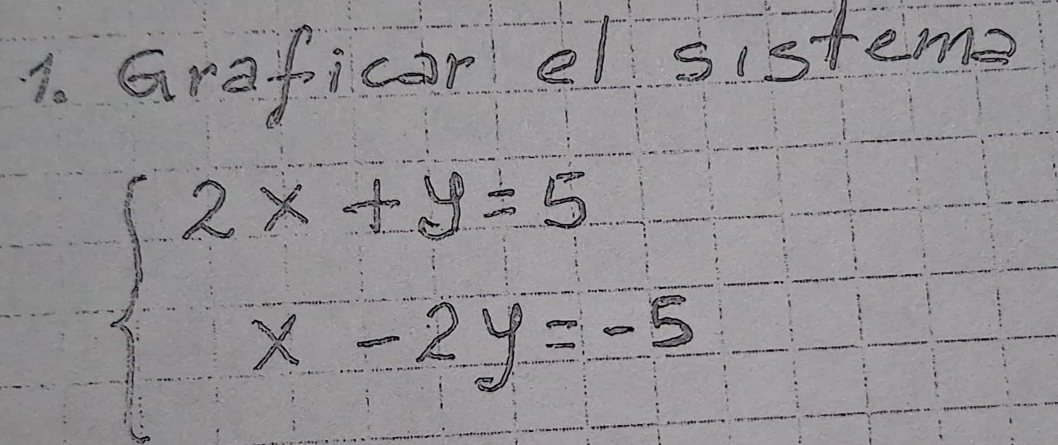 1. Graficar el sistema
2x + y = 5
x - 2y = -5